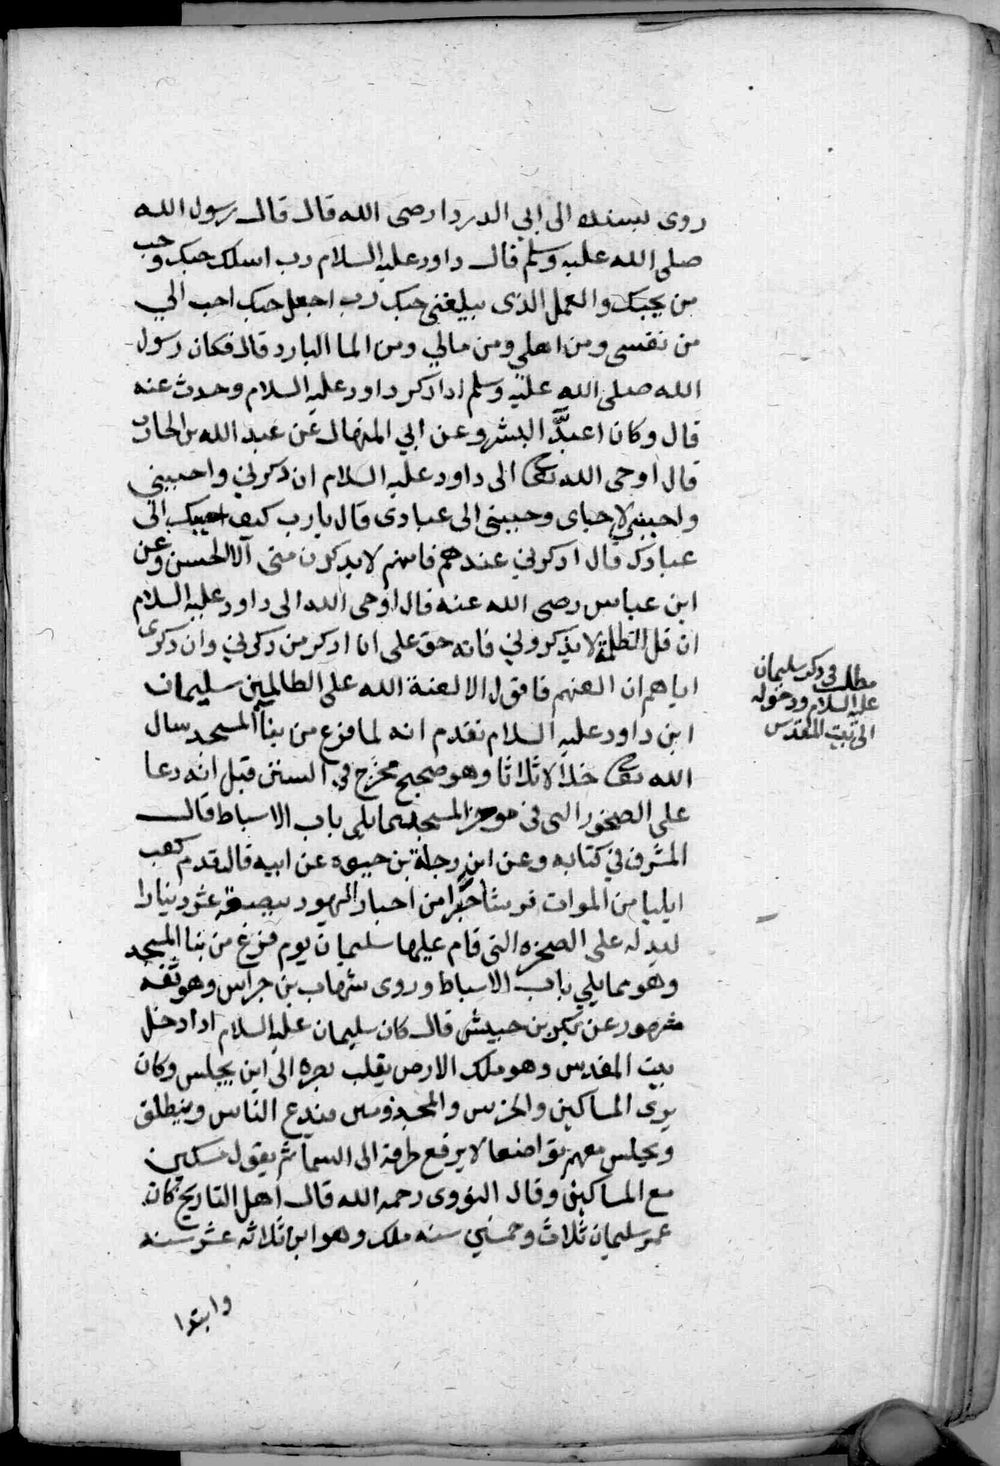 روى بسنده الى ابي الدردا رضى الله قال قال رسول الله
صلى الله عليه وسلم قال داود عليه السلام رب اسلك حبك وحب
من يحبك والعمل الذى يبلغنى حبك رب اجعل حبك احب الي
من نفسى ومن اهلي ومن مالي ومن الما البارد قال فكان رسول
الله صلى الله عليه وسلم اذا ذكر داود عليه السلام وحدث عنه
قال وكان اعبد البشر وعن ابي المنهال عن عبد الله بن الحارث
قال اوحى الله تعالى الى داود عليه السلام ان ذكرني واحببني
واحببني لاحباى وحببنى الى عبادى قال يا رب كيف احببك الى
عبادك قال اذكرني عندهم فانهم لا يذكرون منى الا الحسن وعن
ابن عباس رضى الله عنه قال اوحى الله الى داود عليه السلام
ان قل للظلمة لا يذكروني فانه حق على انا اذكر من ذكرني وان ذكرى
اياهم ان العنهم فاقول الا لعنة الله على الظالمين سليمان
ابن داود عليه السلام تقدم انه لما فزع من بنا المسجد سال
الله تعالى خلالا ثلاثا وهو صحيح مخرج في السنن قبل انه دعا
على الصخور التى فى موخر المسجد مما يلى باب الاسباط قال
المشرف في كتابه وعن ابن رجاة بن حيوه عن ابيه قال قدم كعب
ايليا من المرات فرشا حبرا من احبار اليهود ببضعة عشر دينارا
ليدله على الصخره التى قام عليها سليمان يوم فزع من بنا المسجد
وهو مما يلي باب الاسباط وروى شهاب بن خراس وهو ثقه
مشهور عن بكر بن حبيش قال كان سليمان عليه السلام اذا دخل
بيت المقدس وهو ملك الارض يقلب بصره الى اين يجلس وكان
يرى المساكين والخرس والمجذومين فيدع الناس وينطلق
ويجلس معهم تواضعا لا يرفع طرفه الى السما ثم يقول مسكين
مع المساكين وقال النووى رحمه الله قال اهل التاريخ كان
عمر سليمان ثلاث وخمسين سنه ملك وهو ابن ثلاثه عشر سنه
وابتدا
مطلب في ذكر سليمان
عليه السلام ودخوله
الى بيت المقدس